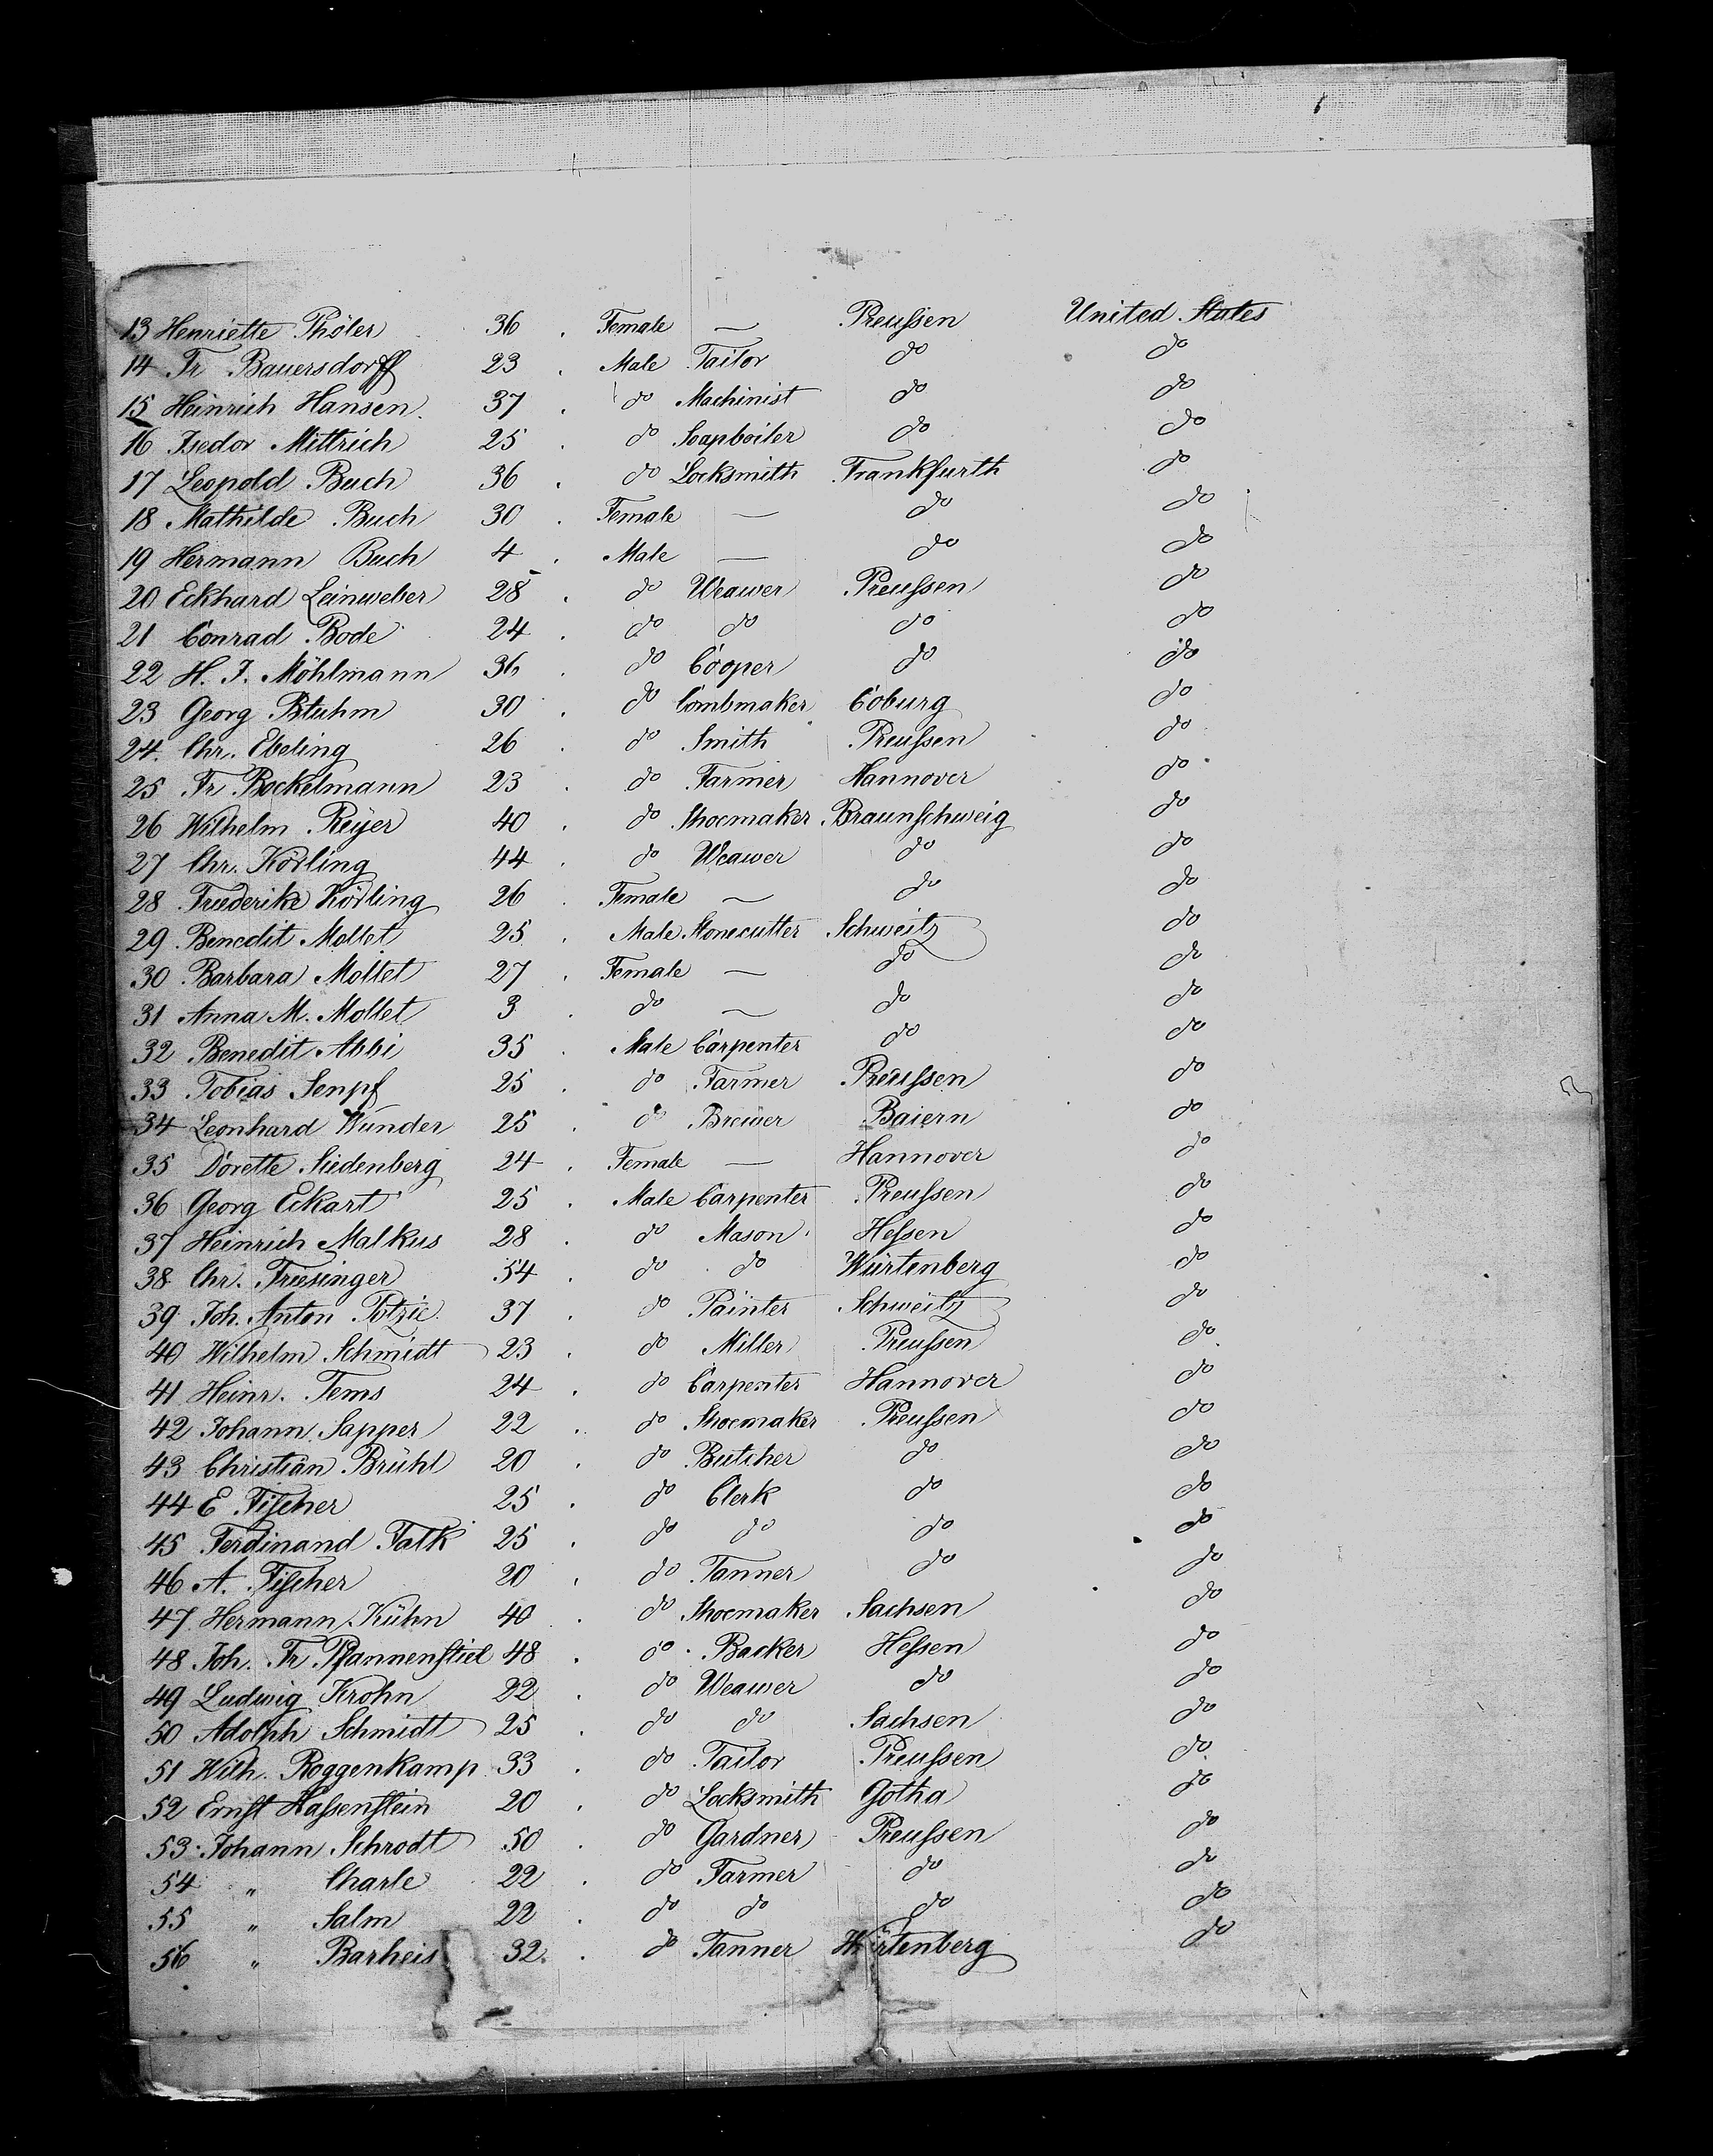 13 Henriette Thöler 36 . Female — Preußen United States
14 Fr Bauersdorff 23 . Male Tailor do do
15 Heinrich Hansen 37 . do Machinist do do
16 Isedor Mittrich 25 . do Soapboiler do do
17 Leopold Buch 36 . do Locksmith Frankfurth do
18 Mathilde Buch 30 . Female — do do
19 Hermann Buch 4 . Male — do do
20 Eckhard Leinweber 28 . do Weawer Preußen do
21 Conrad Bode 24 . do do do do
22 H. J. Möhlmann 36 . do Cooper do do
23 Georg Bluhm 30 . do Combmaker Coburg do
24. Chr. Ebeling 26 . do Smith Preußen do
25 Fr. Bockelmann 23 . do Farmer Hannover do
26 Wilhelm Reijer 40 . do Shoemaker Braunschweig do
27 Chr. Körling 44 . do Weawer do do
28 Friederike Körling 26 . Female — do do
29 Benedit Mollet 25 . Male Stonecutter Schweitz do
30 Barbara Mollet 27 . Female — do do
31 Anna M. Mollet 3 . do — do do
32 Benedit Abbi 35 . Male Carpenter do do
33 Tobias Senpf 25 . do Farmer Preußen do
34 Leonhard Wunder 25 . do Brewer Baiern do
35 Dorette Siedenberg 24 . Female — Hannover do
36 Georg Eckart 25 . Male Carpenter Preußen do
37 Heinrich Malkus 28 . do Mason Heßen do
38 Chr. Friesinger 54 . do do Würtenberg do
39 Joh. Anton Potzic 37 . do Painter Schweitz do
40 Wilhelm Schmidt 23 . do Miller Preußen do
41 Heinr. Tems 24 . do Carpenter Hannover do
42 Johann Sapper 22 . do Shoemaker Preußen do
43 Christian Brühl 20 . do Butcher do do
44 E. Fischer 25 . do Clerk do do
45 Ferdinand Falk 25 . do do do do
46 A. Fischer 20 . do Tanner do do
47 Hermann Kühn 40 . do Shoemaker Sachsen do
48 Joh. Fr. Pfannenstiel 48 . do Backer Heßen do
49 Ludwig Krohn 22 . do Weawer do do
50 Adolph Schmidt 25 . do do Sachsen do
51 Wilh. Roggenkamp 33 . do Tailor Preußen do
52 Ernst Haßenstein 20 . do Locksmith Gotha do
53 Johann Schrodt 50 . do Gardner Preußen do
54 " Charle 22 . do Farmer do do
55 " Salm 22 . do do do do
56 " Barheis 32 . do Tanner Würtenberg do